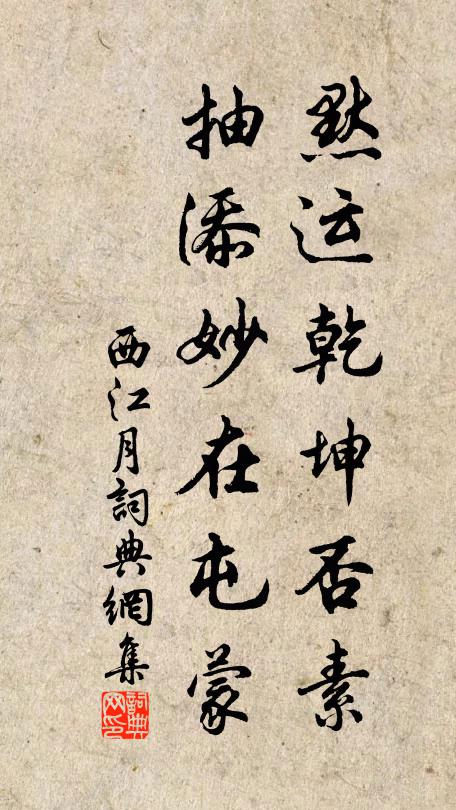 黙运乾坤否素
抽添妙在屯蒙
西江月詞典網集
詞典
网印